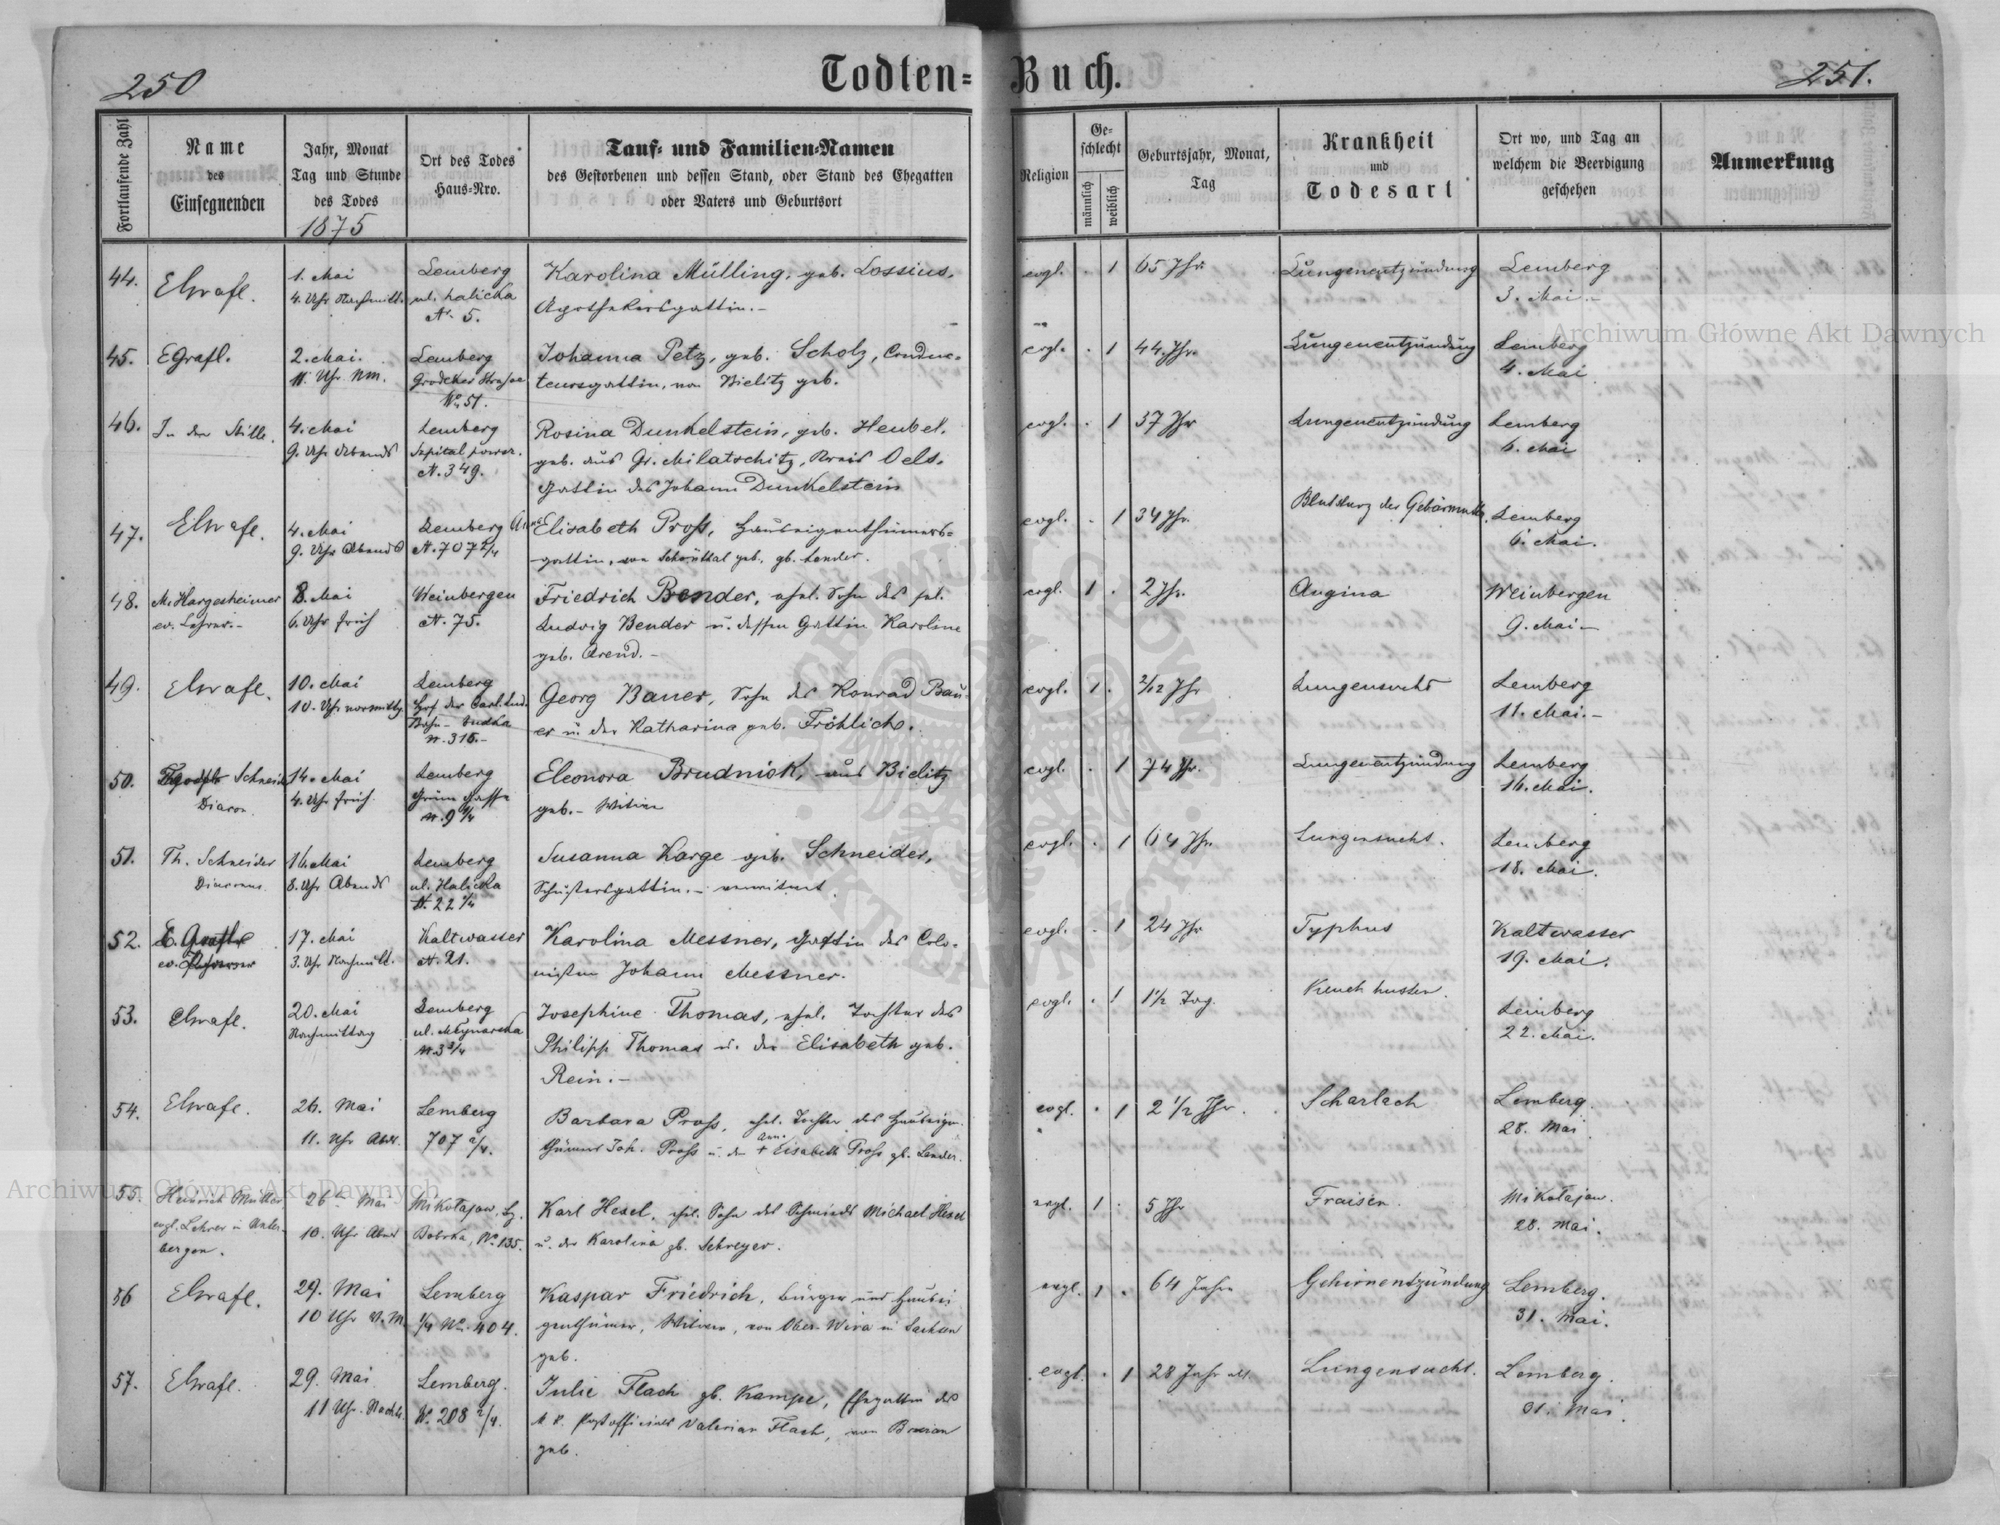 250
Todten-Buch.
251.
Fortlaufende Zahl
Name
des
Einsegnenden
Jahr, Monat
Tag und Stunde
des Todes
1875
Ort des Todes
Haus-Nro.
Tauf- und Familien-Namen
des Gestorbenen und dessen Stand, oder Stand des Ehegatten
oder Vaters und Geburtsort
Religion
Ge-
schlecht
männlich
weiblich
Geburtsjahr, Monat,
Tag
Krankheit
und
Todesart
Ort wo, und Tag an
welchem die Beerdigung
geschehen
Anmerkung
44.
EGrafl.
1. Mai
4. Uhr Nachmitt.
Lemberg
ul. halicka
N. 5.
Karolina Mülling, geb. Lossius,
Apothekersgattin.-
evgl. . 1
65 Jhr.
Lungenentzündung
Lemberg
3. Mai.-
45.
EGrafl.
2. Mai.
11. Uhr Nm.
Lemberg
Grodeker Strasse
No 51.
Johanna Petz, geb. Scholz, Conduc-
teursgattin, von Bielitz geb.
evgl. . 1
44 Jhr.
Lungenentzündung
Lemberg
4. Mai
46.
In der Stille.
4. Mai
9. Uhr Abends
Lemberg
Szpital powsz.
N. 349.
Rosina Dunkelstein, geb. Heubel,
geb. aus Gr. Milatschitz, Kreis Oels,
Gattin des Johann Dunkelstein
evgl. . 1
37 Jhr
Lungenentzündung
Lemberg
6. Mai
47.
EGrafl.
4. Mai
9. Uhr Abends
Lemberg
N. 707 2/4
Anna Elisabeth Pross, Hauseigenthümers-
gattin, von Schönthal geb. gb. Lender.
evgl. . 1
34 Jhr.
Blutsturz der Gebärmutter
Lemberg
6. Mai.
48.
M. Hargesheimer
ev. Lehrer.-
8. Mai
6. Uhr früh
Weinbergen
N. 75.
Friedrich Bender, ehel. Sohn des sel.
Ludwig Bender u. dessen Gattin Karoline
geb. Arend.-
evgl. 1 .
2 Jhr.
Angina
Weinbergen
9. Mai-
49.
EGrafl.
10. Mai
10. Uhr vormittg.
Lemberg
Hof der Carl. Lud.
Bahn-
N. 315.-
Georg Bauer, Sohn des Konrad Bau-
er u. der Katharina geb. Fröhlich.
evgl. 1 .
2/12 Jhr
Lungensucht
Lemberg
11. Mai.-
50.
Schneider
Diacon.
14. Mai
4. Uhr früh
Lemberg
Grüne Gasse
N. 9 1/4
Eleonora Brudniok, aus Bielitz
geb.- Witwe
evgl. . 1
74 Jhr.
Lungenentzündung
Lemberg
16. Mai.
51.
Th. Schneider
Diaconus
16. Mai
8. Uhr Abends
Lemberg
ul. Halicka
N. 22 1/4
Susanna Karge geb. Schneider,
Schustersgattin.- verwitwet
evgl. . 1
64 Jhr.
Lungensucht.
Lemberg
18. Mai.
52.
E. Grafl
ev. Pfarrer
17. Mai
3. Uhr Nachmitt.
Kaltwasser
N. 21.
Karolina Messner, Gattin des Colo-
nisten Johann Messner.
evgl. . 1
24 Jhr
Typhus
Kaltwasser
19. Mai.
53.
EGrafl.
20. Mai
Nachmittag
Lemberg
ul. Mlynarska
N. 3 3/4
Josephine Thomas, ehel. Tochter des
Philipp Thomas u. der Elisabeth geb.
Rein.-
evgl. . 1
1 1/2 Jhg.
Keuchhusten.
Lemberg
22. Mai.
54.
EGrafl.
26. Mai
11. Uhr Abds.
Lemberg
707 2/4.
Barbara Pross, ehel. Tochter des Hauseigen-
thümers Joh. Pross u. der + Anna Elisabeth Pross gb. Lender.
evgl. . 1
2 1/2 Jhr.
Scharlach
Lemberg.
28. Mai
55.
Heinrich Müller
evgl. Lehrer in Unter-
bergen.
26ten Mai
10. Uhr Abend
Mikolajow, bz.
Bobrka, No 135.
Karl Hesel, ehel. Sohn des Schmieds Michael Hesel
u. der Karolina gb. Schreyer.
evgl. 1 .
5 Jhr
Fraisen.
Mikolajow.
28. Mai.
56
EGrafl.
29. Mai
10 Uhr V.M.
Lemberg
1/4 No. 404.
Kaspar Friedrich, Bürger und Hausei-
genthümer, Witwer, von Ober-Wira in Sachsen
geb.
evgl. 1 .
64 Jahre
Gehirnentzündung
Lemberg.
31. Mai.
57.
EGrafl.
29. Mai
11 Uhr Nachts.
Lemberg.
N. 208 2/4.
Julie Flach gb. Kampe, Ehegattin des
k. k. Postofficials Valerian Flach, von
geb.
evgl. . 1
28 Jahr alt
Lungensucht.
Lemberg.
31. Mai.
Archiwum Główne Akt Dawnych
Archiwum Główne Akt Dawnych